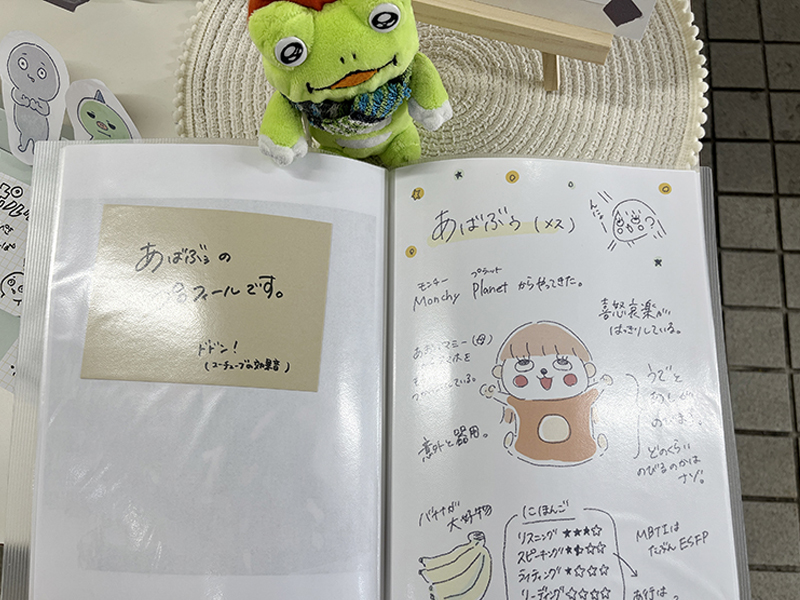 あばぶぅの
フィールです。
ドドン!
(ユーチューブの効果音)
あばぶぅ(メス)
?
モンチー プラット
Monchy Planet からやってきた。
喜怒哀楽が
はっきりしている。
マミー(母)
を
している。
意外と器用。
うでと
のびます。
どのくらい
のびるのかは
ナゾ。
バナナが
大好物
にほんご
リスニング ★★★☆
スピーキング ★★☆☆
ライティング ★☆☆☆
リーディング ☆☆☆☆
MBTIは
たぶんESFP